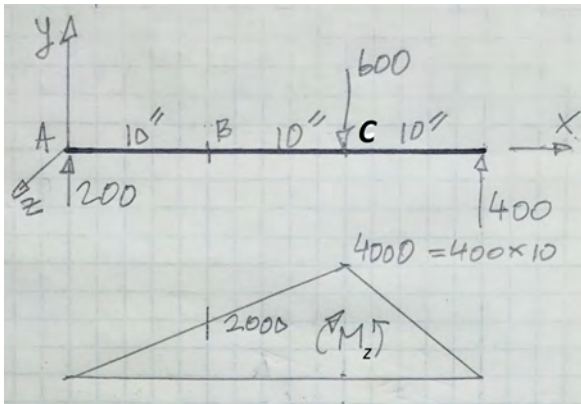 y
600
A 10" B 10" C 10" X
Z 200 400
4000 = 400×10
2000 (Mz)